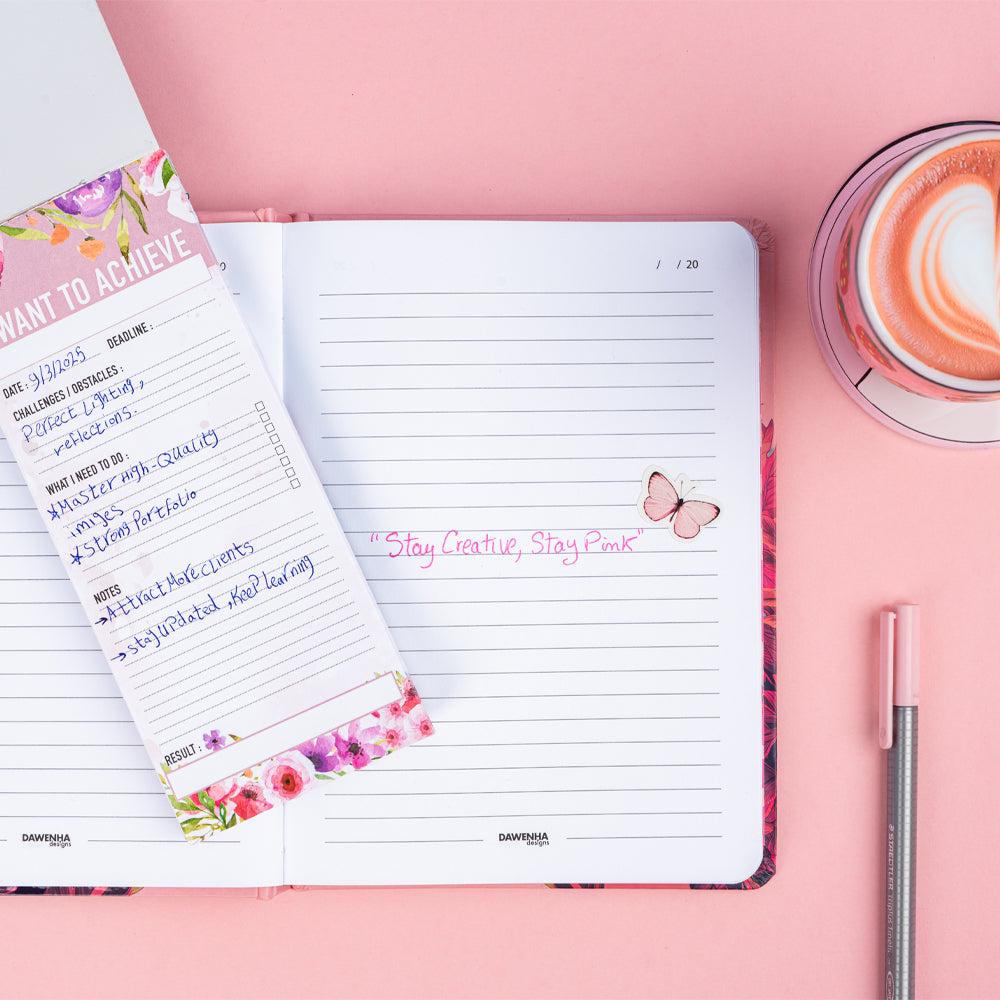 WANT TO ACHIEVE
DATE : 9/3/2025 DEADLINE :
CHALLENGES / OBSTACLES :
Perfect Lighting,
reflections.
WHAT I NEED TO DO :
*Master High-Quality
imiges
*Strong Portfolio
NOTES
→Attract More Clients
→stay updated, Keep learning
RESULT :
DAWENHA
designs
/ / 20
"Stay Creative, Stay Pink"
DAWENHA
designs
STAEDTLER triplus